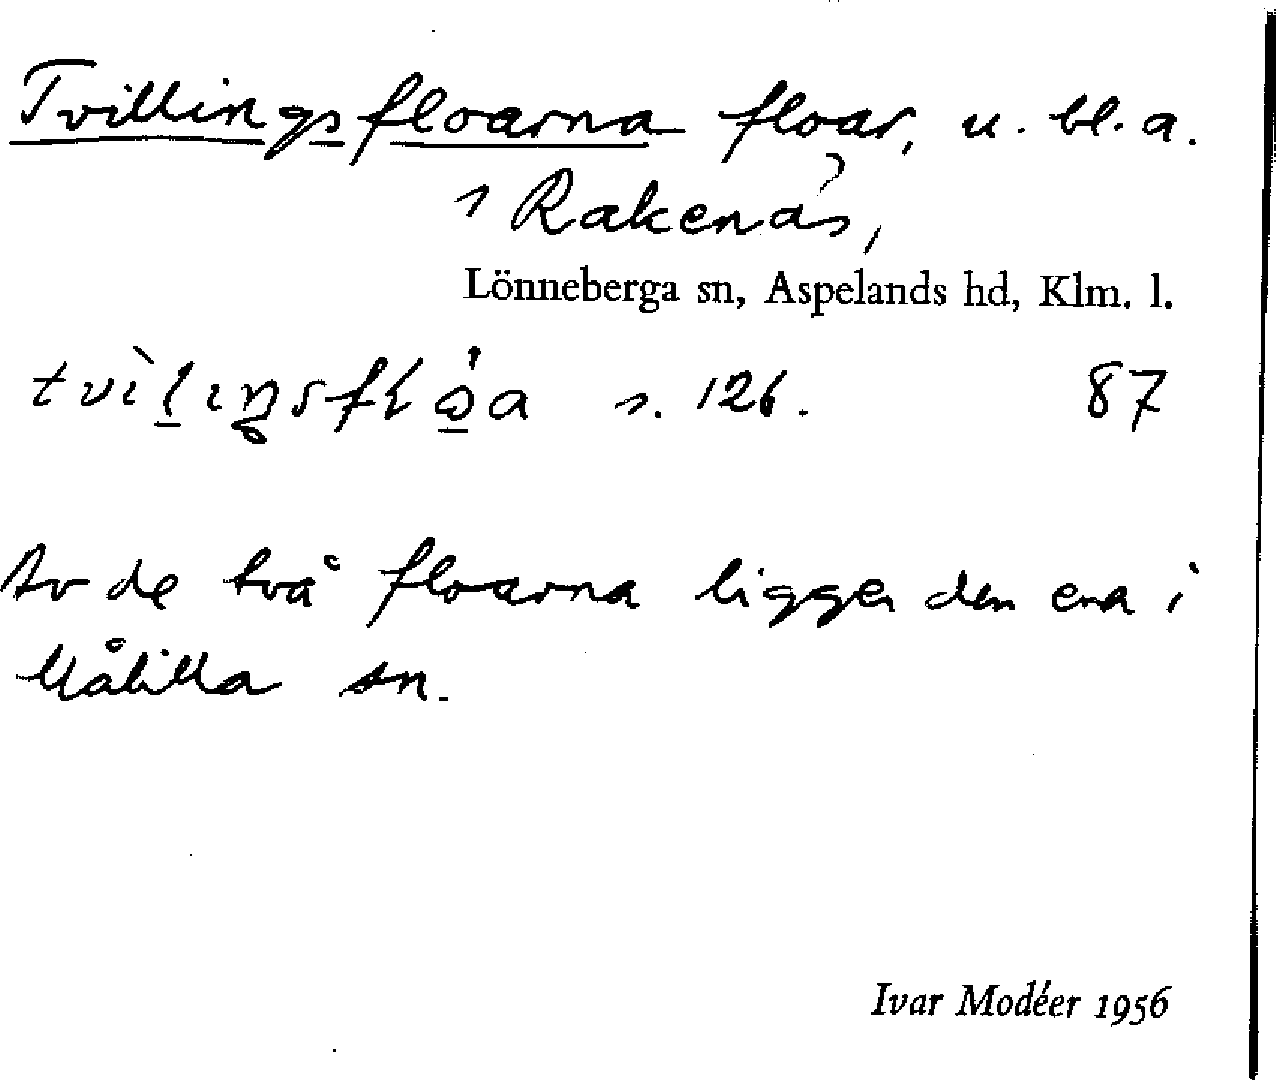 Tvillingsfloarna floar, u. bl. a.
s Rakenäs,
Lönneberga sn, Aspelands hd, Klm. l.
s. 126. 87
Av de två floarna ligger den ena i
Målilla sn.
Ivar Modéer 1956